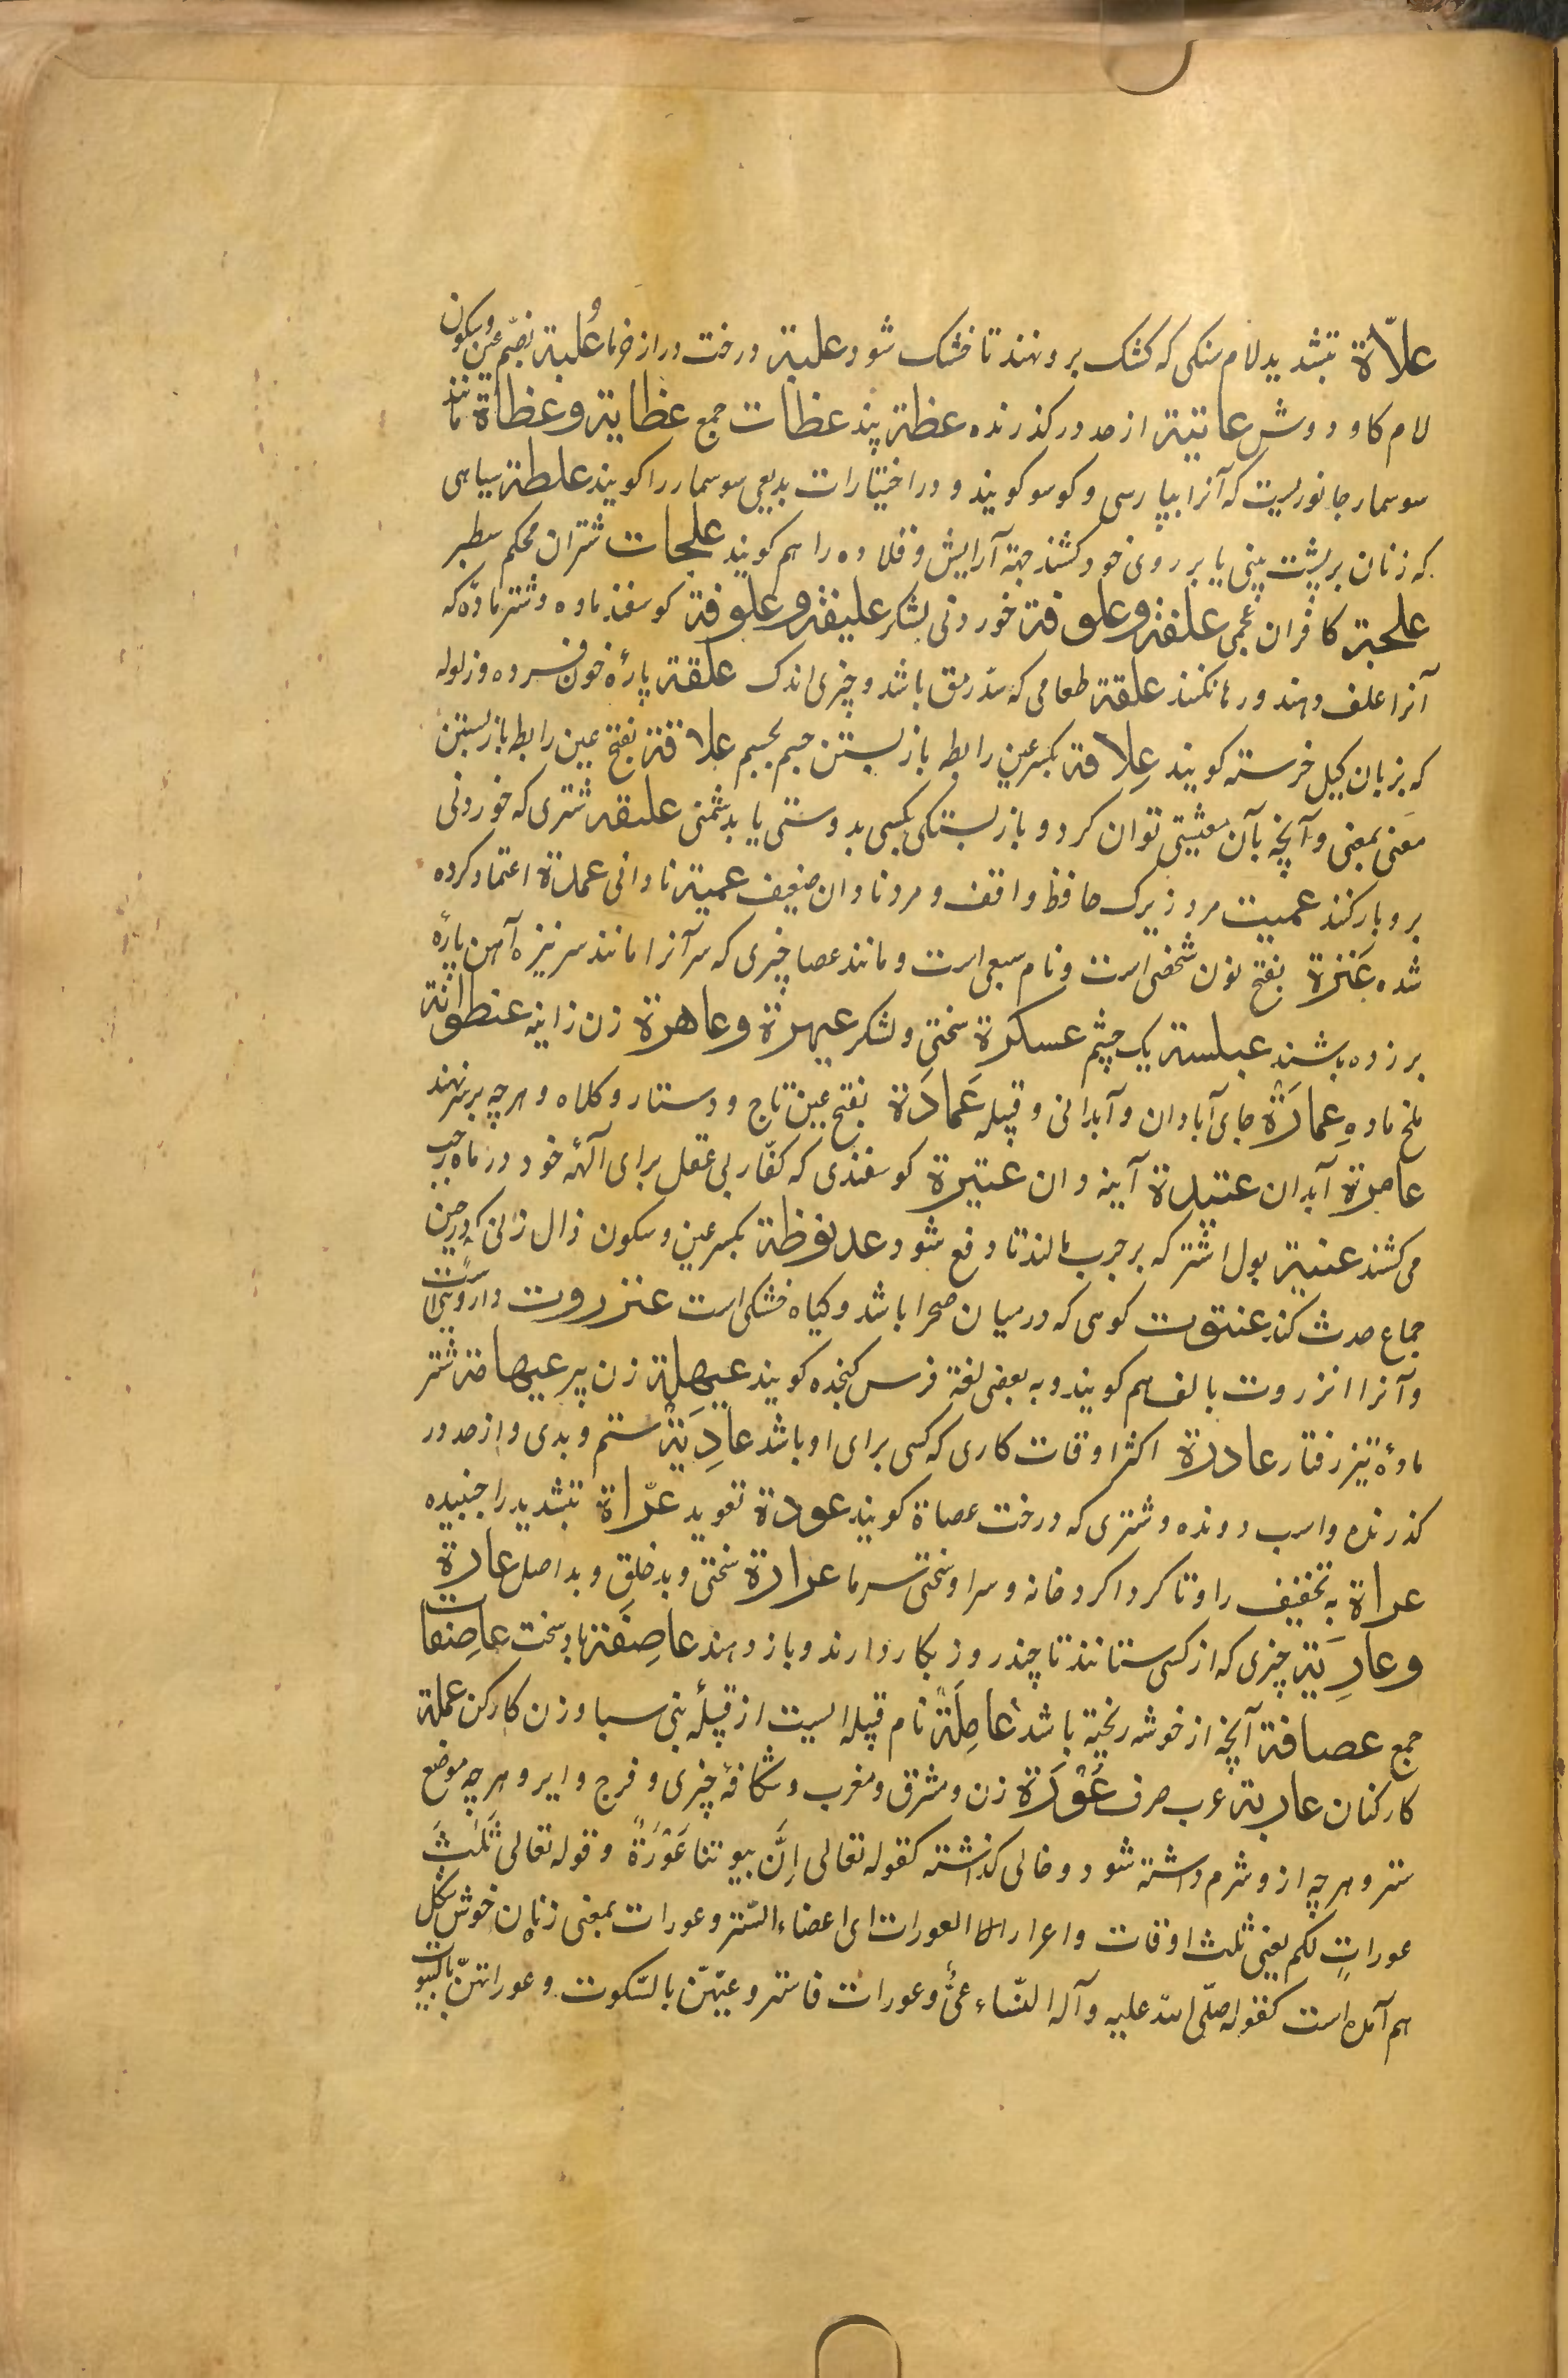 علاّة بتشدید لام سنکی که کشک برو نهند تا خشک شود علبة درخت دراز خرما و عُلبة بضم عین و سکون
لام کاو دوش عاتیة از حد در کذرنده عظة پند عظات جمع عظایة و عظاة مانند
سوسمار جانوریست که آنرا بپارسی و کوسو کویند و در اختیارات بدیعی سوسمار را کویند علطة سیاهی
که زنان بر پشت بینی یا بر روی خود کشند جهة آرایش و قلاده را هم کویند علجات شتران محکم سطبر
علجة کافران عجمی علفة و علوفة خوردنی لشکر علیفة و علوفة کوسفند ماده و شتر مادّه که
آنرا علف دهند و رها نکنند علقة طعامی که سدّ رمق باشد و چیزی اندک علقة پارۀ خون فسرده و زلوله
که بزبان کیل خرسته کویند عِلاقة بکسر عین رابطه بازبستن جسم بجسم علاقة بفتح عین رابطه بازبستن
معنی بمعنی و آنچه بآن معیشتی توان کرد و بازبستکی بکسی بدوستی یا بدشمنی علیقه شتری که خوردنی
برو بار کنند عمیت مرد زیرک حافظ واقف و مرد نادان ضعیف عمیة نادانی عمدة اعتماد کرده
شده عَنَزة بفتح نون شخصی است و نام سبعی است و مانند عصا چیزی که سر آنرا مانند سر نیزه آهن پارۀ
بر زده باشند عبلسة یک چشم عسکرة سختی و لشکر عیهرة و عاهرة زن زانیه عنطوانة
ملخ ماده عِمارَة جای آبادان و آبدانی و قبیله عَمارَة بفتح عین تاج و دستار و کلاه و هر چه بر سر نهند
عامرة آبدان عتیدة آینه دان عتیرة کوسفندی که کفّار بی عقل برای آلهۀ خود در ماه رجب
می کشند عنیة بول اشتر که بر جرب مالند تا دفع شود عذیوظة بکسر عین و سکون ذال زنی که در حین
جماع حدث کند عنتوت کوهی که در میان صحرا باشد و کیاه خشکی است عنزروت داروئی است
و آنرا انزروت بالف هم کویند و به بعضی لغة فرس کنجده کویند عیهلة زن پیر عیهامة شتر
مادۀ تیز رفتار عاددة اکثر اوقات کاری که کسی برای او باشد عادِیَة ستم و بدی و از حد در
کذرنده و اسب دونده و شتری که درخت عصاة کویند عودة تعوید عرّاة بتشدید را جنبیده
عراة به تخفیف را و تا کرداکرد خانه و سرا و سختی سرما عرارة سختی و بد خلق و بد اصل عارة
و عارِیَة چیزی که از کسی ستانند تا چند روز بکار دارند و باز دهند عاصِفَة باد سخت عاصِفات
جمع عصافة آنچه از خوشه ریخته باشد عامِلَة نام قبیله ایست از قبیلۀ بنی سبا و زن کارکن عملة
کارکنان عاربة عرب صرف عَوْرَة زن و مشرق و مغرب و شکافۀ چیزی و فرج و ایر و هر چه موضع
ستر و هر چه ازو شرم داشته شود و خالی کذاشته کقوله تعالی اِنَّ بیوتنا عَوْرَةٌ و قوله تعالی ثَلٰثُ
عوراتٍ لکم یعنی ثلث اوقات و اعرار العورات ای اعضاء السّتر و عورات بمعنی زنان خوش شکل
هم آمده است کقوله صلّی اللّه علیه و آله النّساء عیٌّ و عورات فاستروا عیّهنّ بالسّکوت و عوراتهنّ بالبیوت